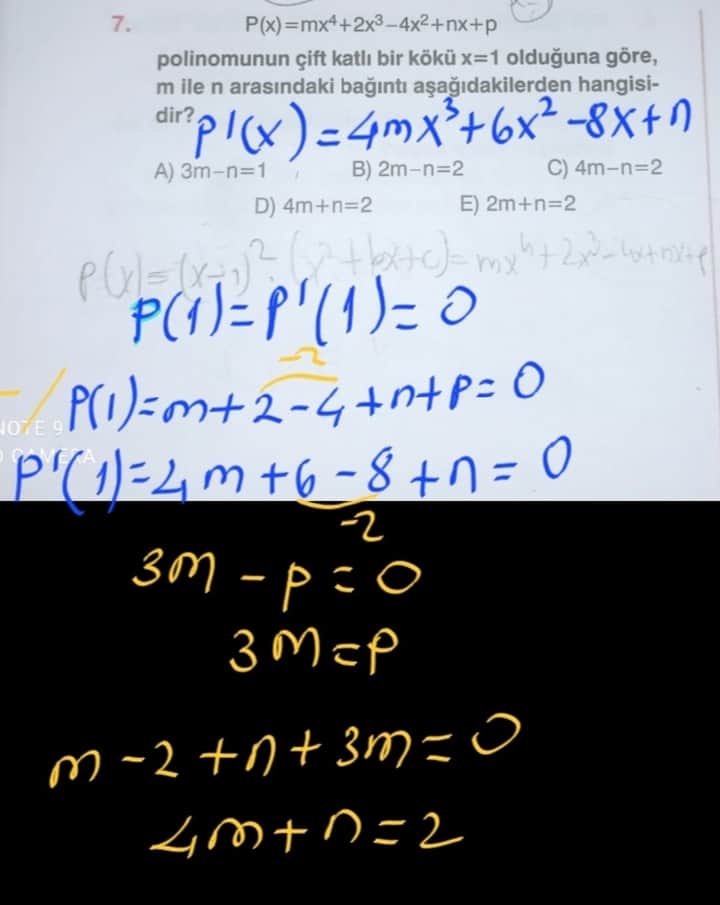 7. P(x)=mx⁴+2x³-4x²+nx+p
polinomunun çift katlı bir kökü x=1 olduğuna göre,
m ile n arasındaki bağıntı aşağıdakilerden hangisi-
dir?
P'(x)=4mx³+6x²-8x+n
A) 3m-n=1 B) 2m-n=2 C) 4m-n=2
D) 4m+n=2 E) 2m+n=2
P(x)=(x-1)².(x²+bx+c)=mx⁴+2x³-4x+nx+p
P(1)=P'(1)=0
-2
-/ P(1)=m+2-4+n+p=0
NOTE 9
CAMERA
P'(1)=4m+6-8+n=0
-2
3m-p=0
3m=p
m-2+n+3m=0
4m+n=2